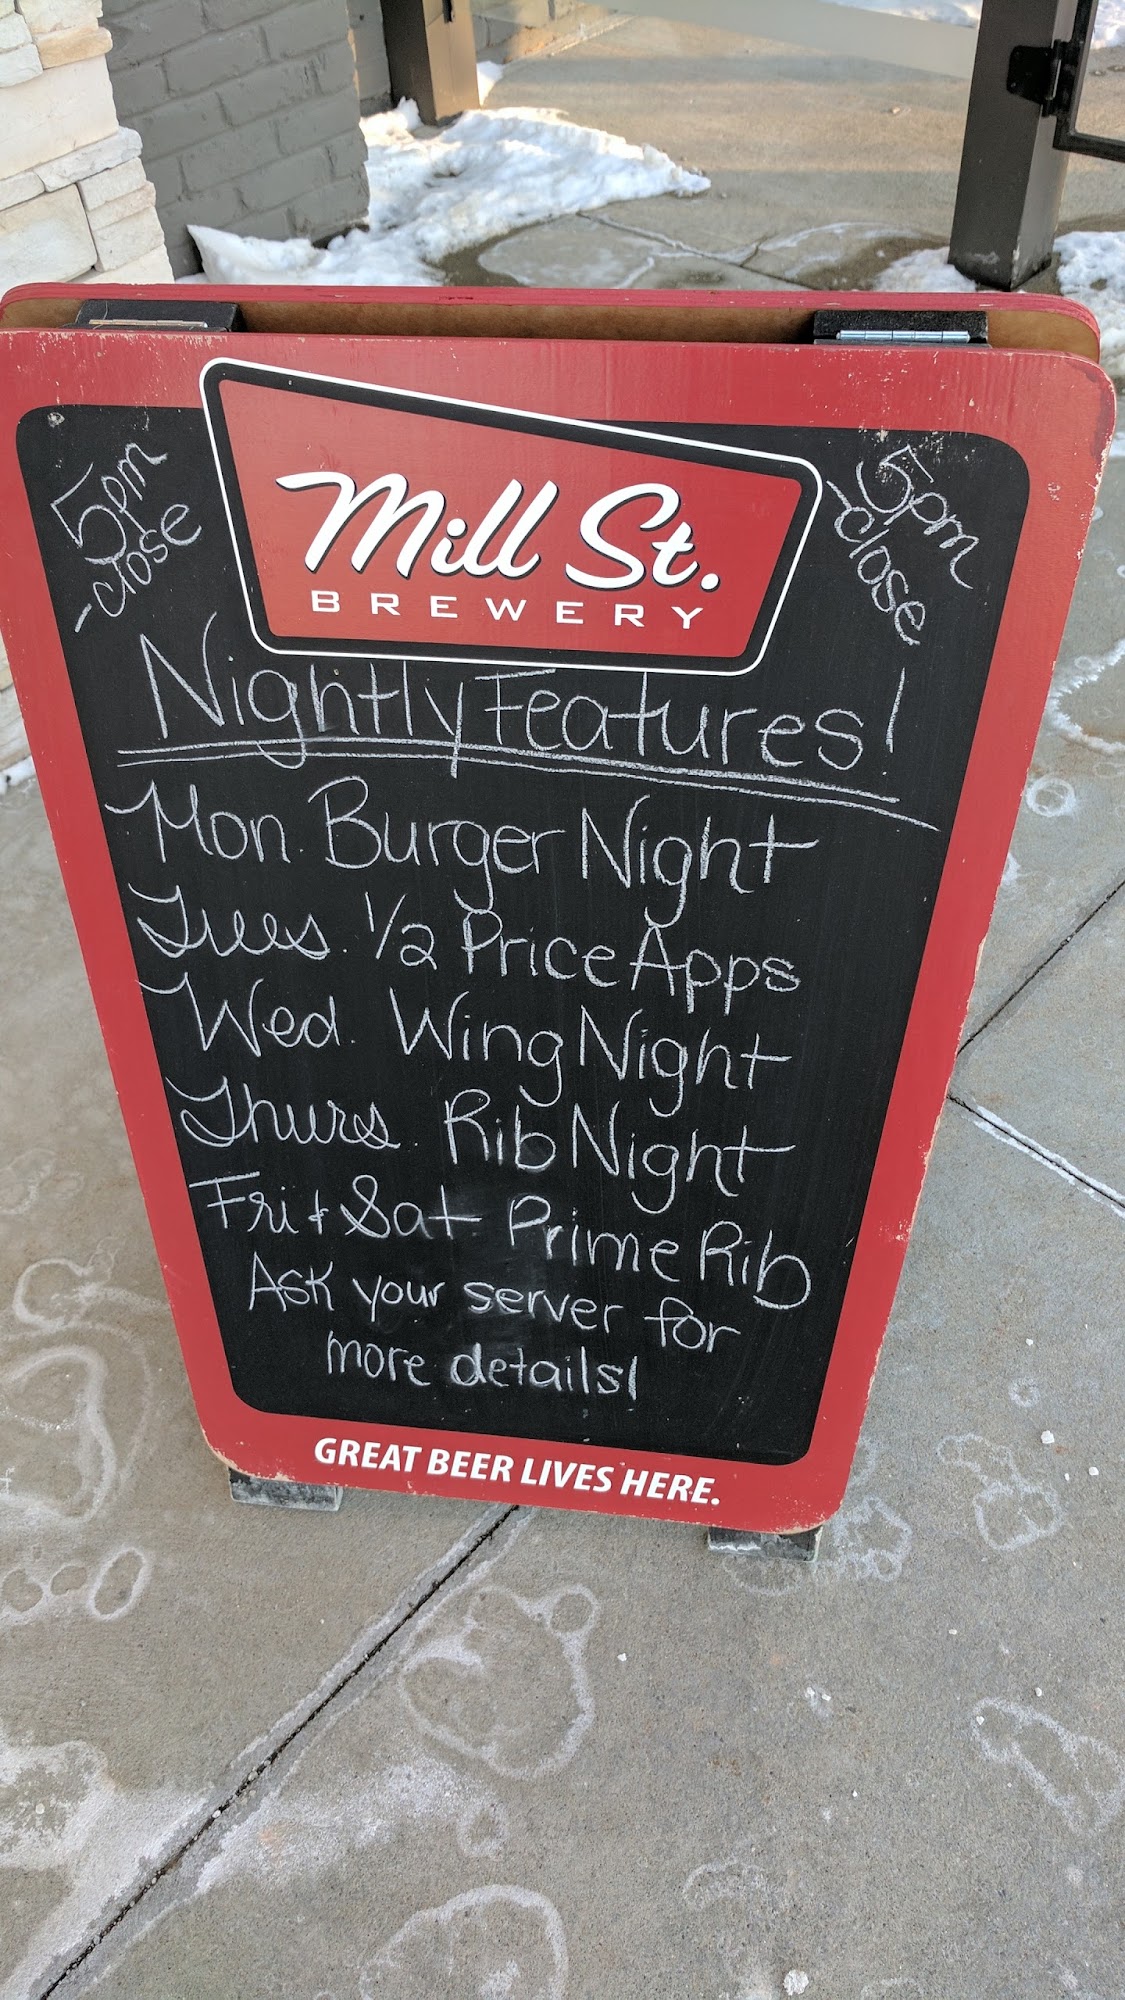 5pm
-close
Mill St.
BREWERY
5pm
-close
Nightly Features!
Mon. Burger Night
Tues. 1/2 Price Apps
Wed. Wing Night
Thurs. Rib Night
Fri + Sat Prime Rib
Ask your server for
more details!
GREAT BEER LIVES HERE.